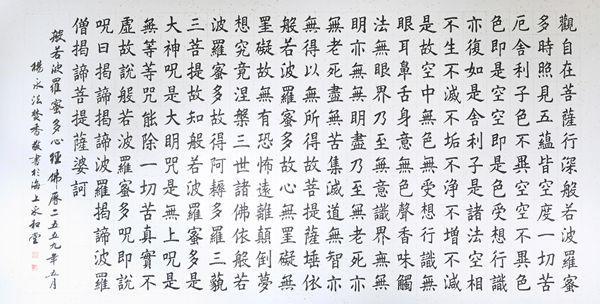 觀自在菩薩行深般若波羅蜜
多時照見五蘊皆空度一切苦
厄舍利子色不異空空不異色
色即是空空即是色受想行識
亦復如是舍利子是諸法空相
不生不滅不垢不淨不增不減
是故空中無色無受想行識無
眼耳鼻舌身意無色聲香味觸
法無眼界乃至無意識界無無
明亦無無明盡乃至無老死亦
無老死盡無苦集滅道無智亦
無得以無所得故菩提薩埵依
般若波羅蜜多故心無罣礙無
罣礙故無有恐怖遠離顛倒夢
想究竟涅槃三世諸佛依般若
波羅蜜多故得阿耨多羅三藐
三菩提故知般若波羅蜜多是
大神咒是大明咒是無上咒是
無等等咒能除一切苦真實不
虛故說般若波羅蜜多咒即說
咒曰揭諦揭諦波羅揭諦波羅
僧揭諦菩提薩婆訶
般若波羅蜜多心經佛曆二五五九年五月
楊永法焚香敬書於海上永和堂